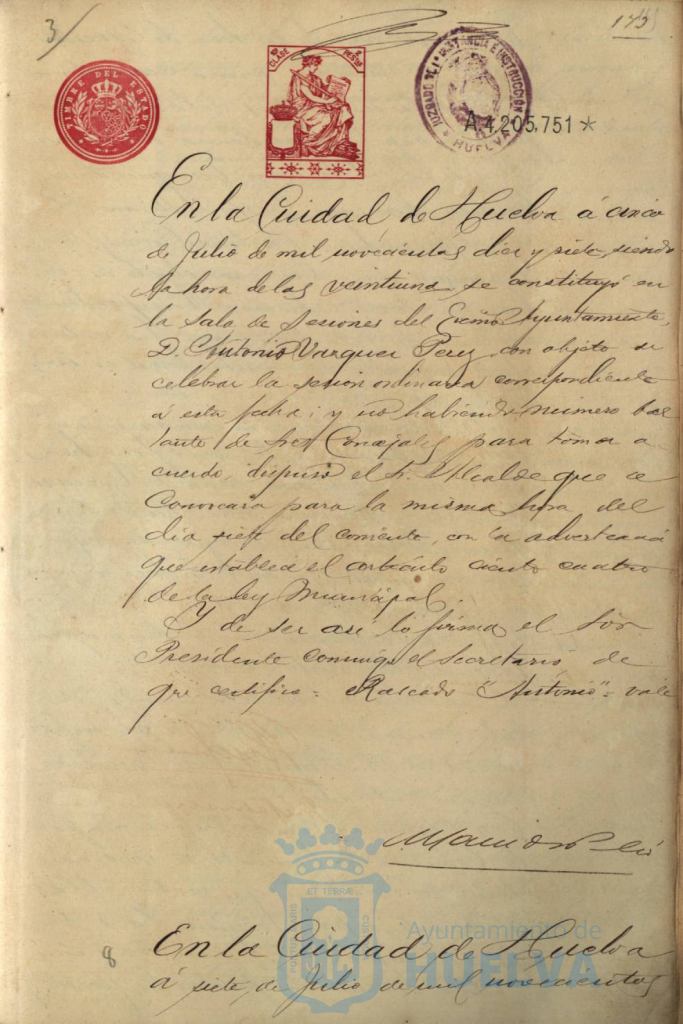 3
175
TIMBRE DEL ESTADO
CLASE
JUZGADO DE 1ª INSTANCIA E INSTRUCCIÓN
HUELVA
A4,205,751*
En la Ciudad de Huelva á cinco
de Julio de mil novecientos diez y siete, siendo
la hora de las veintiuna, se constituyó en
la Sala de Sesiones del Excmo Ayuntamiento,
D. Antonio Vazquez Perez, con objeto de
celebrar la sesion ordinaria correspondiente
á esta fecha; y no habiendo número bas
tante de Sres Concejales para tomar a
cuerdo, dispuso el Sr. Alcalde que se
convocara para la misma hora del
dia siete del corriente, con la advertencia
que establece el artículo ciento cuatro
de la Ley Municipal.
Y de ser asi lo firma el Sor
Presidente conmigo el Secretario de
que certifico = Rascado "Antonio" = vale
ET TERRÆ
Ayuntamiento de
HUELVA
8
En la Ciudad de Huelva
á siete de Julio de mil novecientos